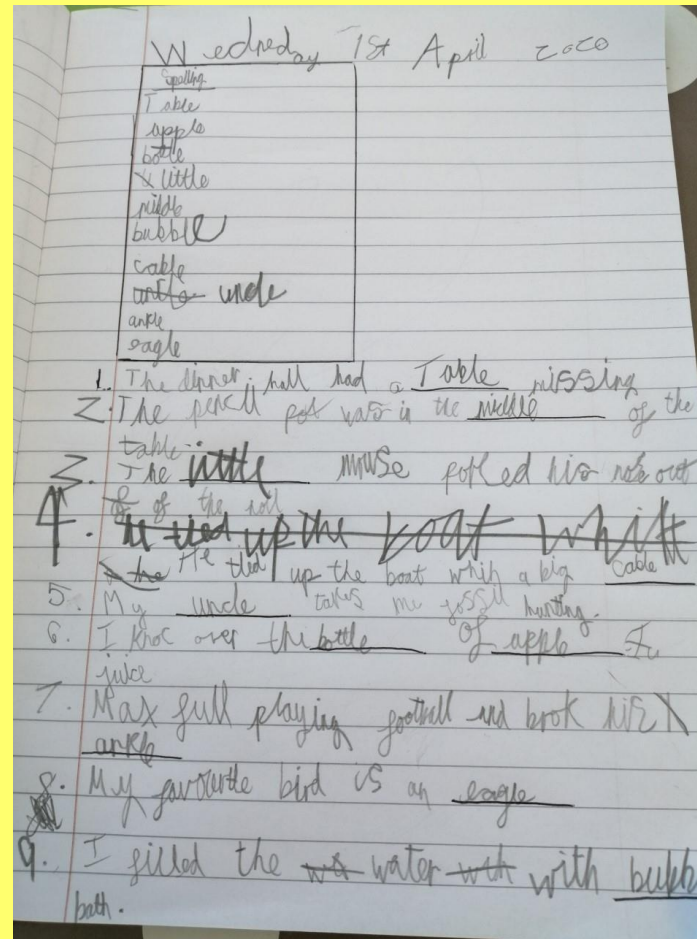 Wedneday 1st April 2020
Spelling
Table
apple
bottle
little
middle
bubble
cable
uncle
ankle
eagle
1. The dinner hall had a Table missing
2. The pencil pot was in the middle of the
table.
3. The little mouse poked his nose out
of the
4. He tied up the boat
He tied up the boat whith a big Cable
5. My uncle takes me fossil hunting.
6. I knoc over the bottle of apple
juice
7. Max full playing football and brok his
ankle
8. My favourite bird is an eagle
9. I filled the water with bubb
bath.